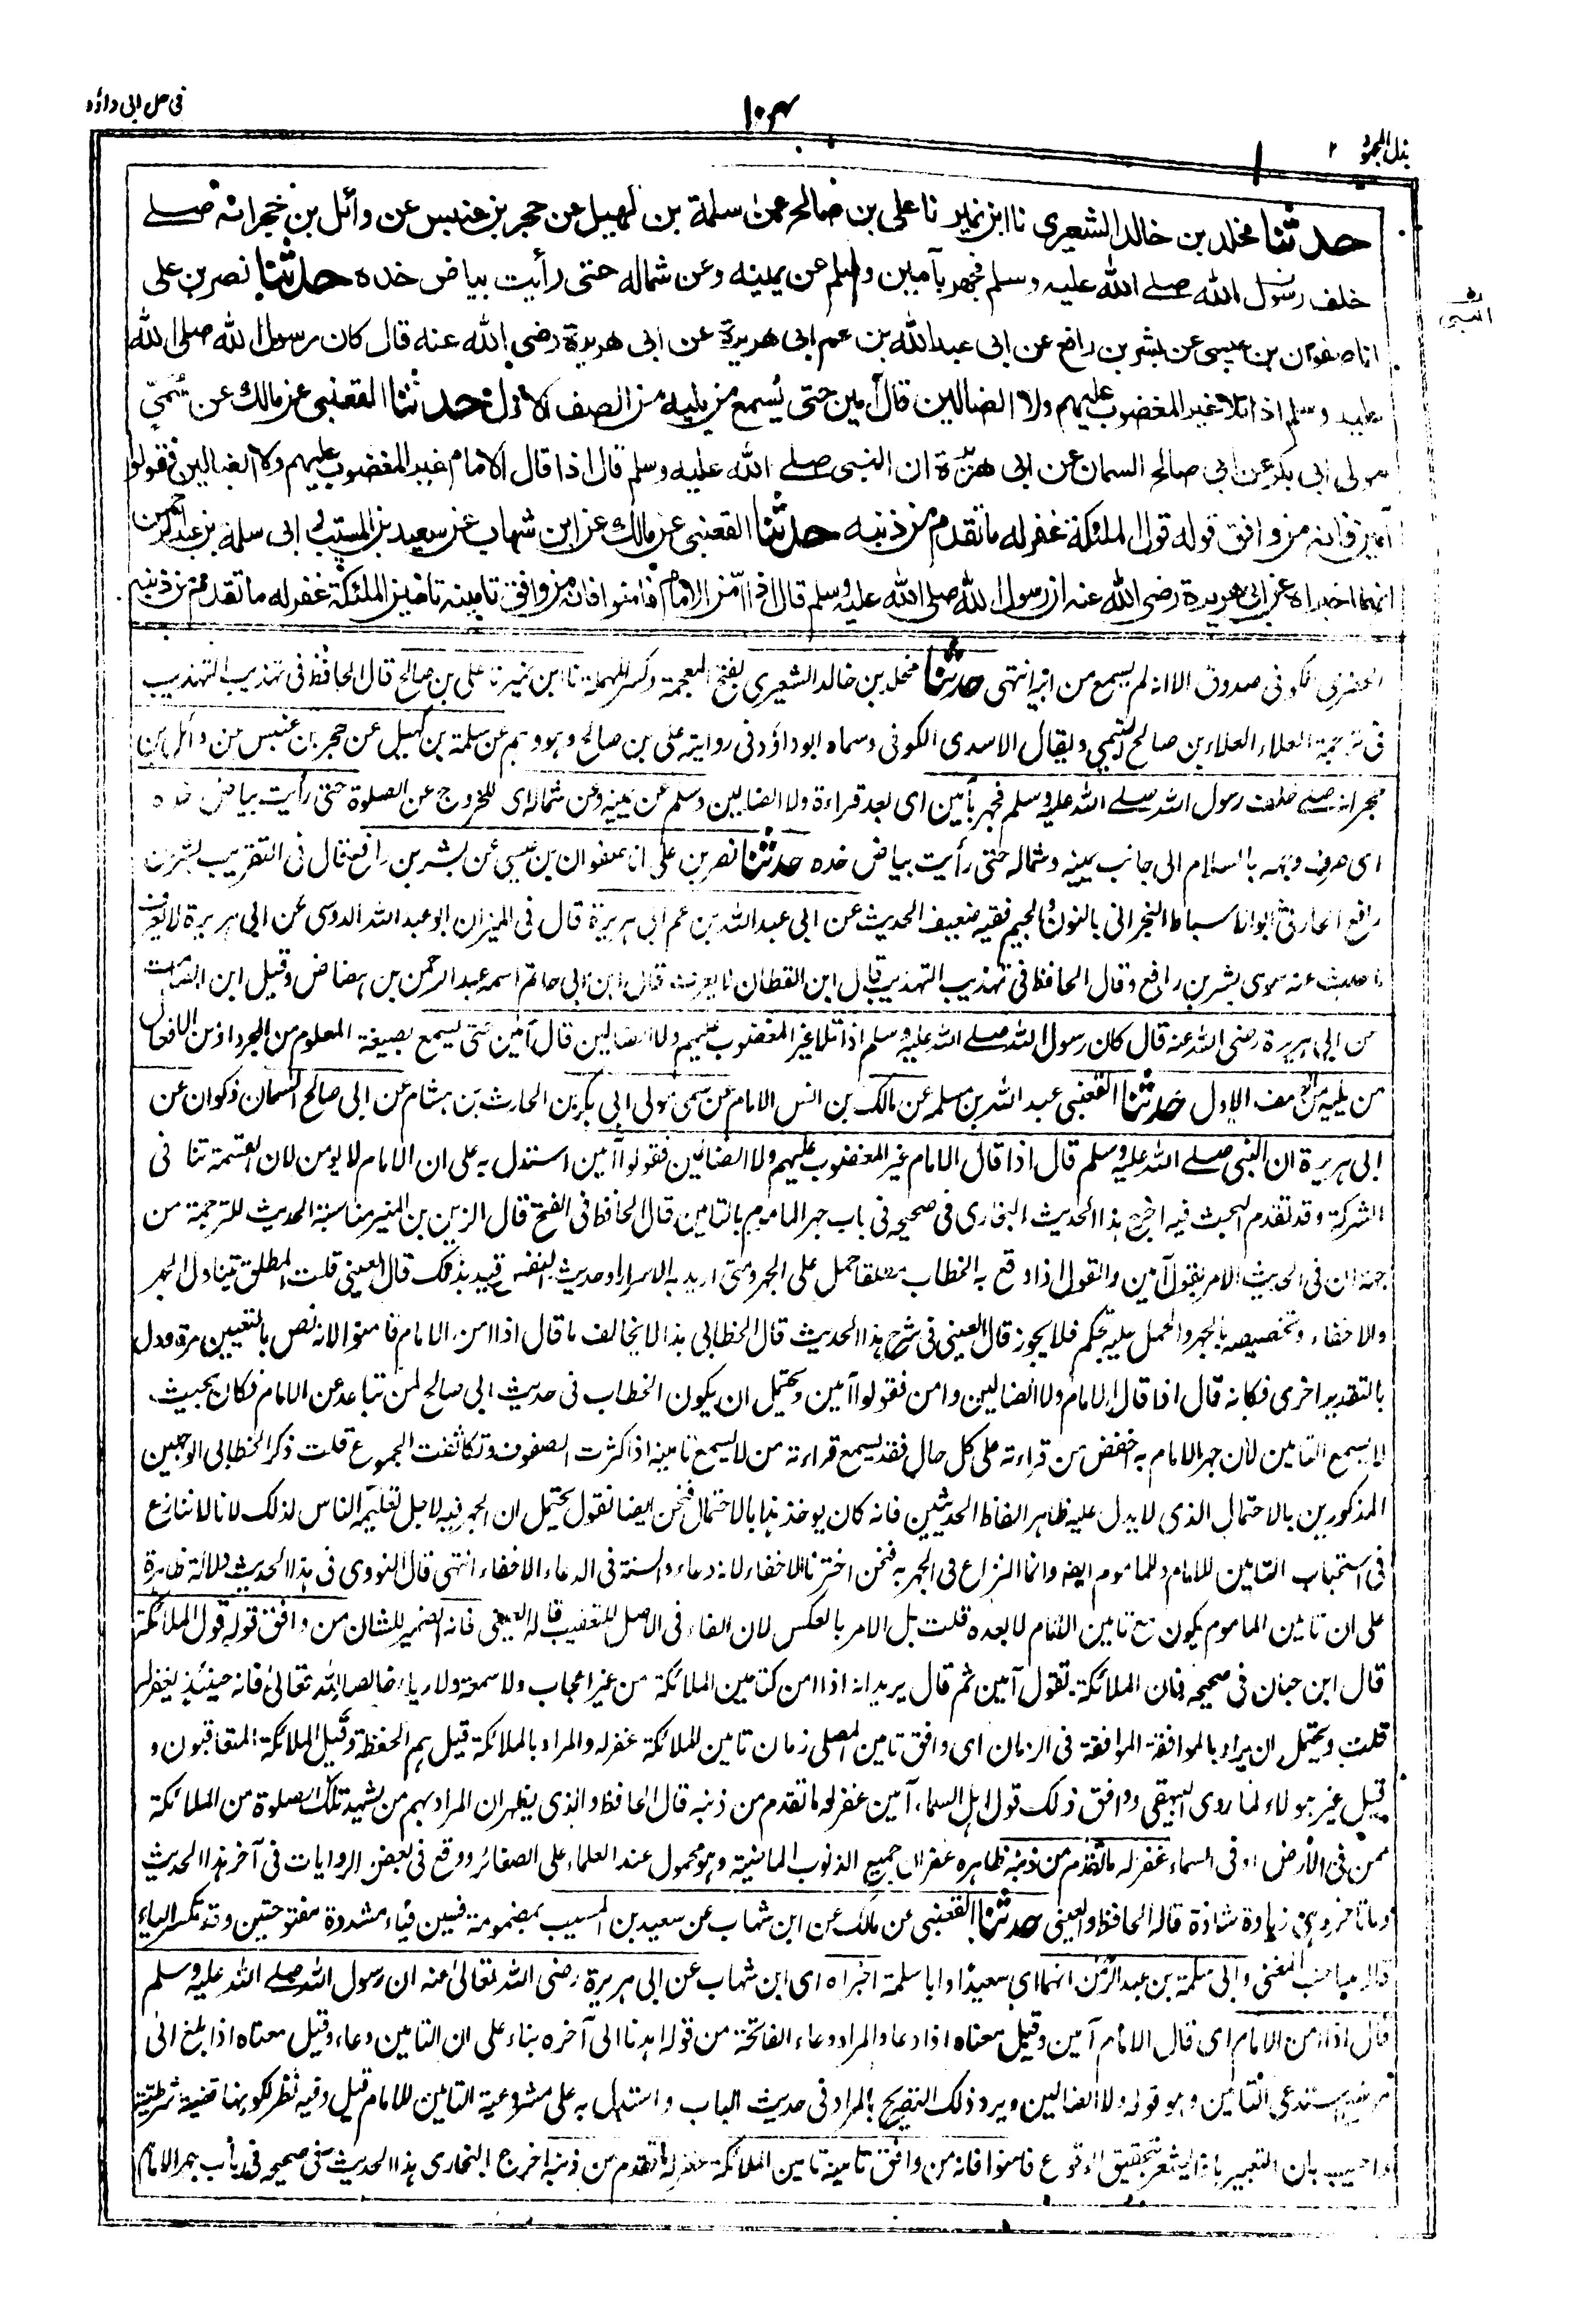 في حل ابي داؤد
١٠٣
بذل المجهود
حدثنا مخلد بن خالد الشعيري نا ابن نمير نا علي بن صالح عن سلمة بن كهيل عن حجر بن عنبس عن وائل بن حجر انه صلے
خلف رسول الله صلے الله عليه وسلم فجهر بآمين وسلم عن يمينه وعن شماله حتى رأيت بياض خده حدثنا نصر بن علي
انا صفوان بن عيسى عن بشر بن رافع عن ابي عبد الله بن عم ابي هريرة عن ابي هريرة رضي الله عنه قال كان رسول الله صلى الله
عليه وسلم اذا تلا غير المغضوب عليهم ولا الضالين قال آمين حتى يسمع من يليه من الصف الاول حدثنا القعنبي عن مالك عن سمي
مولى ابي بكر عن ابي صالح السمان عن ابي هريرة ان النبي صلے الله عليه وسلم قال اذا قال الامام غير المغضوب عليهم ولا الضالين فقولوا
آمين فانه من وافق قوله قول الملئكة غفر له ما تقدم من ذنبه حدثنا القعنبي عن مالك عن ابن شهاب عن سعيد بن المسيب و ابي سلمة بن عبد الرحمن
انهما اخبراه عن ابي هريرة رضي الله عنه ان رسول الله صلى الله عليه وسلم قال اذا امن الامام فامنوا فانه من وافق تامينه تامين الملئكة غفر له ما تقدم من ذنبه
الكوفي صدوق الا انه لم يسمع من ابيه انتهى حدثنا مخلد بن خالد الشعيري بفتح المعجمة وكسر المهملة نا ابن نمير نا علي بن صالح قال الحافظ في تهذيب التهذيب
في ترجمة العلاء العلاء بن صالح التيمي ويقال الاسدي الكوفي وسماه ابو داؤد في روايته علي بن صالح وهو وهم عن سلمة بن كهيل عن حجر بن عنبس عن وائل بن
حجر انه صلے خلف رسول الله صلے الله عليه وسلم فجهر بآمين اى بعد قراءة ولا الضالين وسلم عن يمينه وعن شماله اى للخروج عن الصلوة حتى رأيت بياض خده
اى صرف وجهه بالسلام الى جانب يمينه وشماله حتى رأيت بياض خده حدثنا نصر بن علي انا صفوان بن عيسى عن بشر بن رافع قال في التقريب بشر بن
رافع الحارثي ابو الاسباط النجراني بالنون والجيم فقيه ضعيف الحديث عن ابي عبد الله بن عم ابي هريرة قال في الميزان ابو عبد الله الدوسي عن ابي هريرة لا يعرف
ما حدث عنه سوى بشر بن رافع وقال الحافظ في تهذيب التهذيب قال ابن القطان لا يعرف وقال ابن ابي حاتم اسمه عبد الرحمن بن هضاض وقيل ابن الصامت
عن ابي هريرة رضي الله عنه قال كان رسول الله صلے الله عليه وسلم اذا تلا غير المغضوب عليهم ولا الضالين قال آمين حتى يسمع بصيغة المعلوم من المجرد او من الافعال
من يليه من الصف الاول حدثنا القعنبي عبد الله بن مسلمة عن مالك بن انس الامام عن سمي مولى ابي بكر بن الحارث بن هشام عن ابي صالح السمان ذكوان عن
ابي هريرة ان النبي صلے الله عليه وسلم قال اذا قال الامام غير المغضوب عليهم ولا الضالين فقولوا آمين استدل به على ان الامام لا يومن لان القسمة تنافى
الشركة وقد تقدم البحث فيه اخرج هذا الحديث البخاري في صحيحه في باب جهر الماموم بالتامين قال الحافظ في الفتح قال الزين بن المنير مناسبة الحديث للترجمة من
جهة ان في الحديث الامر بقول آمين والقول اذا وقع به الخطاب مطلقا حمل على الجهر ومتى اريد به الاسرار او حديث النفس قيد بذلك قال العيني قلت المطلق يتناول الجهر
والاخفاء وتخصيصه بالجهر والحمل عليه تحكم فلا يجوز قال العيني في شرح هذا الحديث قال الخطابي هذا لا يخالف ما قال اذا امن الامام فامنوا لانه نص بالتعيين مرة ودل
بالتقدير اخرى فكانه قال اذا قال الامام ولا الضالين وامن فقولوا آمين ويحتمل ان يكون الخطاب في حديث ابي صالح لمن تباعد عن الامام فكان بحيث
لا يسمع التامين لان جهر الامام به اخفض من قراءته على كل حال فقد يسمع قراءته من لا يسمع تامينه اذا كثرت الصفوف وتكاثفت الجموع قلت ذكر الخطابي الوجهين
المذكورين بالاحتمال الذي لا يدل عليه ظاهر الفاظ الحديثين فانه كان يوخذ هذا بالاحتمال فنحن ايضا نقول يحتمل ان الجهر فيه لاجل تعليمه الناس لذلك لانا لا ننازع
في استحباب التامين للامام وللماموم ايضا وانما النزاع في الجهر به فنحن اخترنا الاخفاء لانه دعاء والسنة في الدعاء الاخفاء انتهى قال النووي في هذا الحديث دلالة ظاهرة
على ان تامين الماموم يكون مع تامين الامام لا بعده قلت بل الامر بالعكس لان الفاء في الاصل للتعقيب قاله العيني فانه الضمير للشان من وافق قوله قول الملائكة
قال ابن حبان في صحيحه فان الملائكة تقول آمين ثم قال يريد انه اذا امن كتامين الملائكة من غير اعجاب ولا سمعة ولا رياء خالصا لله تعالى فانه حينئذ يغفر له
قلت ويحتمل ان يراد بالموافقة الموافقة في الزمان اى وافق تامين المصلي زمان تامين الملائكة غفر له والمراد بالملائكة قيل هم الحفظة وقيل الملائكة المتعاقبون و
قيل غير هولاء لما روى البيهقي ووافق ذلك قول اهل السماء آمين غفر له ما تقدم من ذنبه قال الحافظ والذي يظهر ان المراد بهم من يشهد تلك الصلوة من الملائكة
ممن في الأرض او في السماء غفر له ما تقدم من ذنبه ظاهره غفران جميع الذنوب الماضية وهو محمول عند العلماء على الصغائر ووقع في بعض الروايات في آخر هذا الحديث
وما تاخر وهى زيادة شاذة قاله الحافظ والعيني حدثنا القعنبي عن مالك عن ابن شهاب عن سعيد بن المسيب بمضمومة فسين فياء مشددة مفتوحتين وقد تكسر الياء
قاله صاحب المغني وابي سلمة بن عبد الرحمن انهما اى سعيدا وابا سلمة اخبراه اى ابن شهاب عن ابي هريرة رضي الله تعالى عنه ان رسول الله صلے الله عليه وسلم
قال اذا امن الامام اى قال الامام آمين وقيل معناه اذا دعا والمراد دعاء الفاتحة من قوله اهدنا الى آخره بناء على ان التامين دعاء وقيل معناه اذا بلغ الى
موضع يستدعي التامين وهو قوله ولا الضالين ويرد ذلك التصريح بالمراد في حديث الباب واستدل به على مشروعية التامين للامام قيل وفيه نظر لكونها قضية شرطية
واجيب بان التعبير باذا يشعر بتحقيق الوقوع فامنوا فانه من وافق تامينه تامين الملائكة غفر له ما تقدم من ذنبه اخرج البخاري هذا الحديث في صحيحه في باب جهر الامام